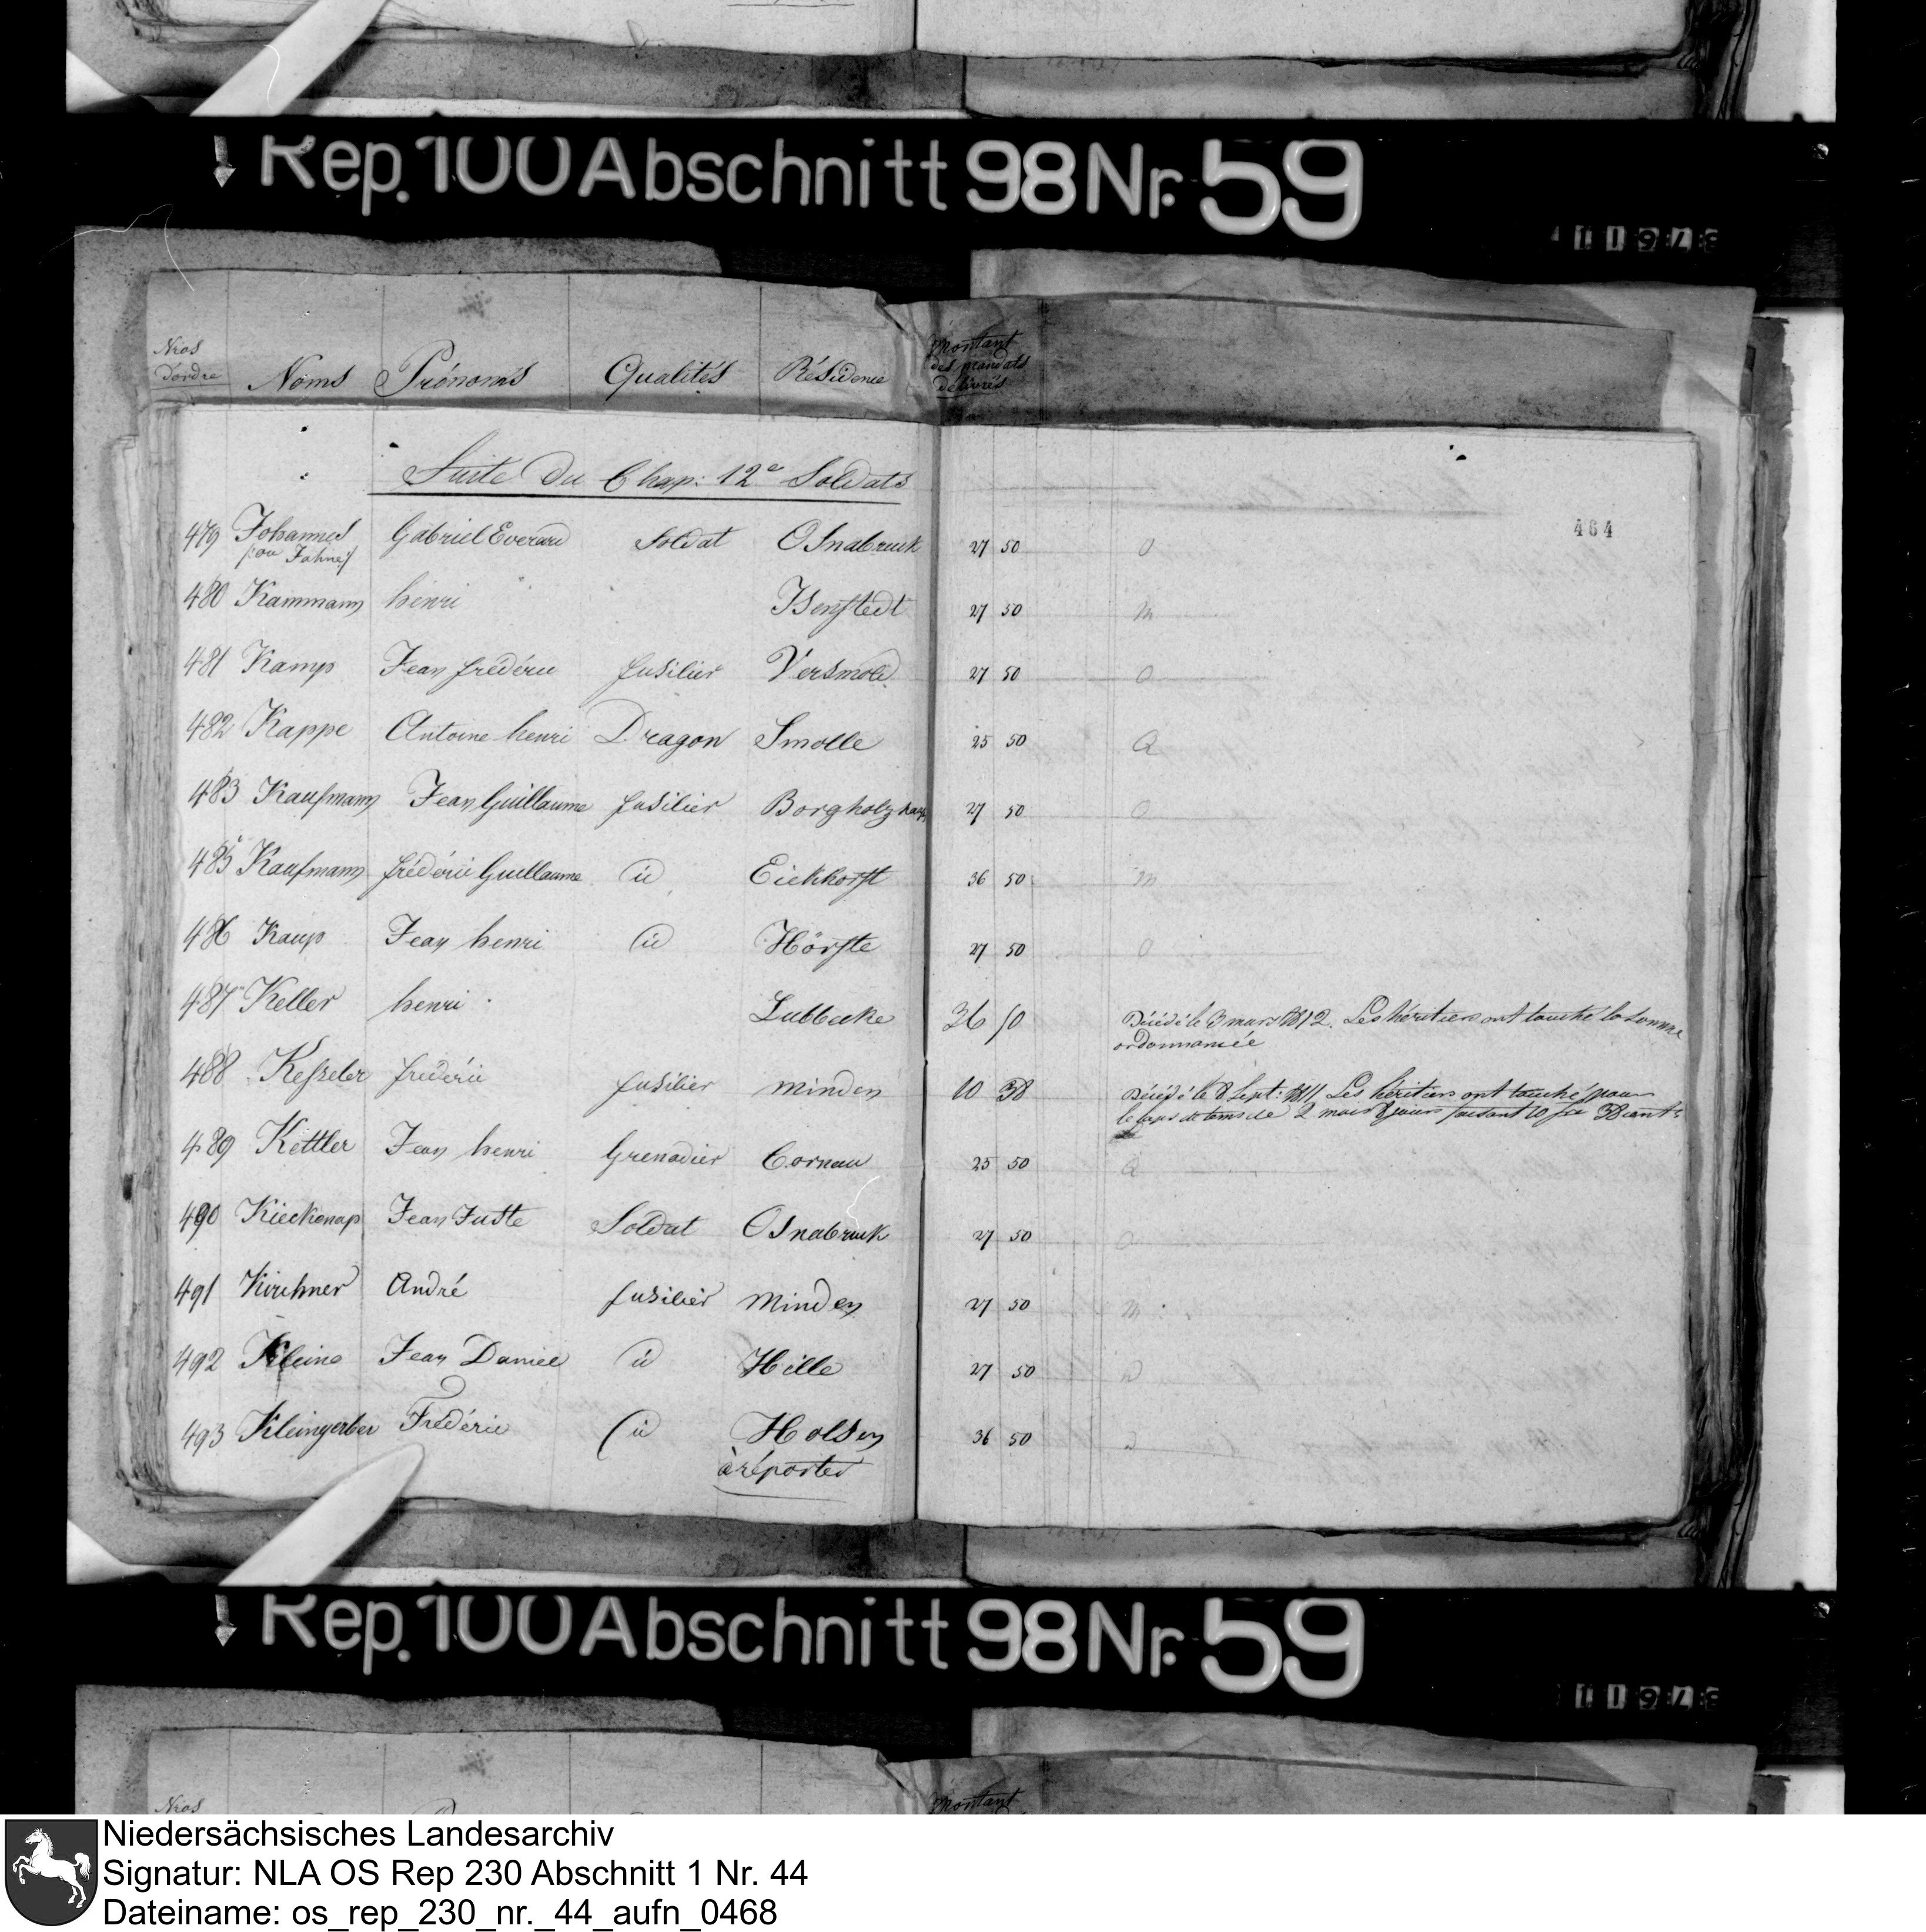 Rep. 100 Abschnitt 98 Nr. 59
Nros d'ordre Noms Prénoms Qualités Résidence Montant des mandats délivrés
Suite du Chap: 12e Soldats
464
479 Johannes Gabriel Everard Soldat Osnabruck 27 50 O
/:ou Jahne/
480 Kammann henri Isenstedt 27 50 m
481 Kamp Jean frédéric fusilier Versmold 27 50 O
482 Kappe Antoine henri Dragon Smolle 25 50 Q
483 Kaufmann Jean Guillaume fusilier Borgholzhaus 27 50 O
485 Kaufmann frédéric Guillaume id Eickhorst 36 50 m
486 Kaup Jean henri id Hörste 27 50 O
487 Keller henri Lubbecke 36 50 Décédé le 3 mars 1812. Les héritiers ont touché la somme
ordonnancée
488 Kesseler frédéric fusilier minden 10 38 Décédé le 8 Sept: 1811 Les héritiers ont touché pour
le laps de tems de 2 mois 8 jours faisant 10 fr 38 cent:
489 Kettler Jean henri Grenadier Cornau 25 50 Q
490 Kieckenap Jean Juste Soldat Osnabruck 27 50 O
491 Kirchner André fusilier minden 27 50 m
492 Kleine Jean Daniel id Hille 27 50
493 Kleingerber Frédéric id Holsen 36 50
à réporter
Rep. 100 Abschnitt 98 Nr. 59
Nros Montant
Niedersächsisches Landesarchiv
Signatur: NLA OS Rep 230 Abschnitt 1 Nr. 44
Dateiname: os_rep_230_nr._44_aufn_0468